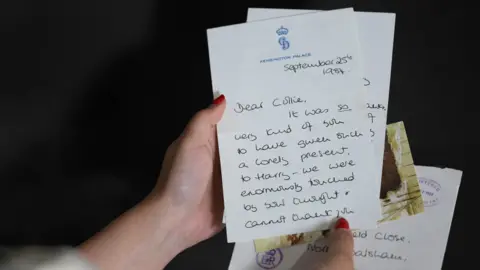 KENSINGTON PALACE
September 25th
1984
Dear Collie,
It was so
very kind of you
to have given such
a lovely present,
to Harry - we were
enormously touched
by your thought &
cannot thank you
Close,
Walsham.